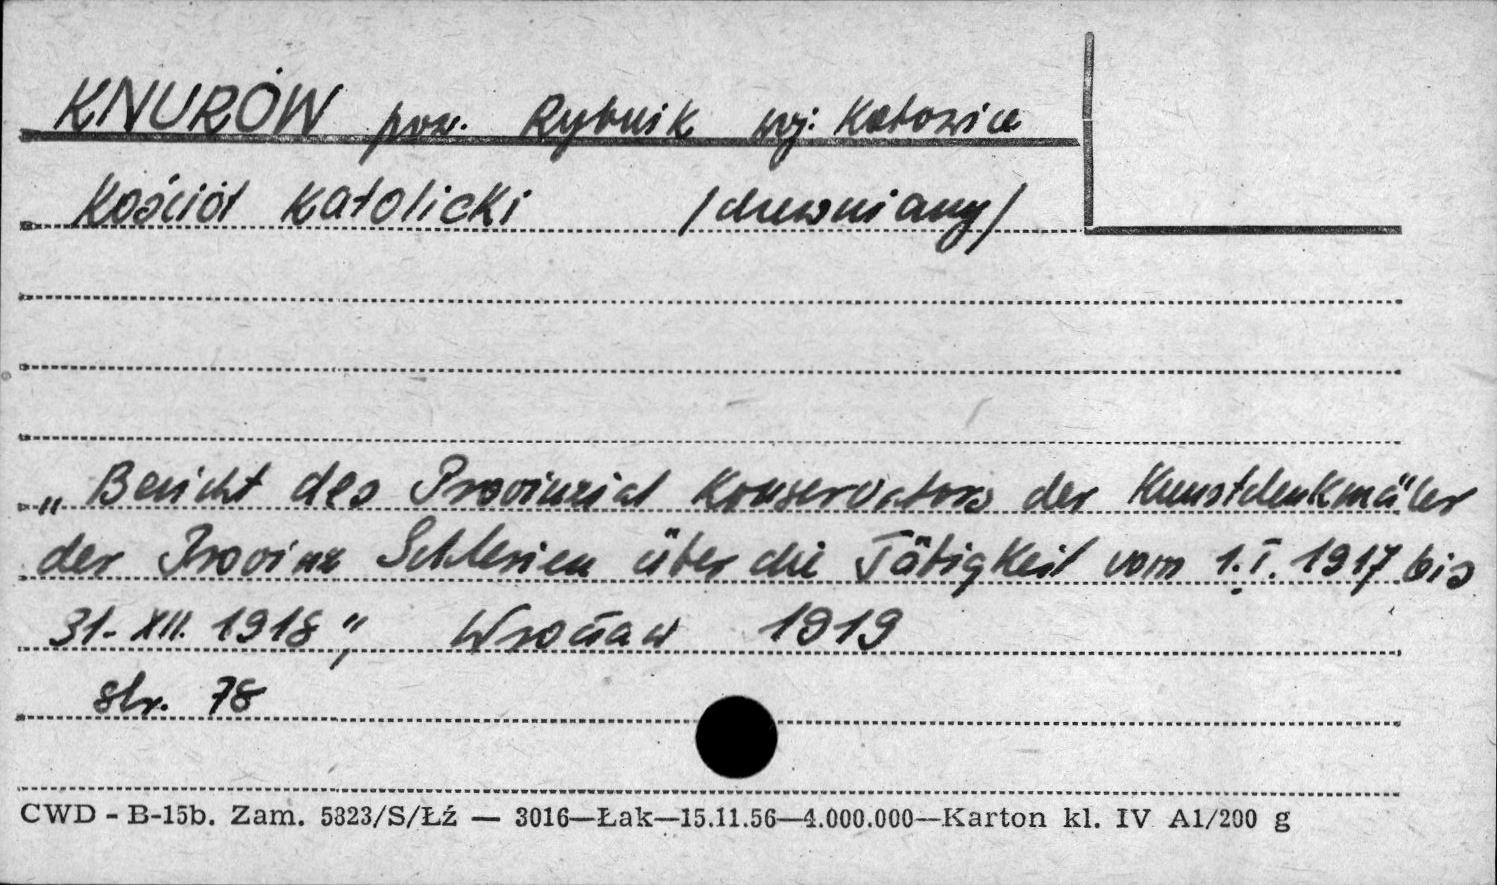 KNURÓW pow. Rybnik woj. Katowice
Kościół Katolicki /drewniany/
„Bericht des Provinzial Konservators der Kunstdenkmäler
der Provinz Schlesien über die Tätigkeit vom 1.I.1917 bis
31.XII.1918", Wrocław 1919
str. 78
CWD - B-15b. Zam. 5323/S/Łź — 3016—Łak—15.11.56—4.000.000—Karton kl. IV A1/200 g